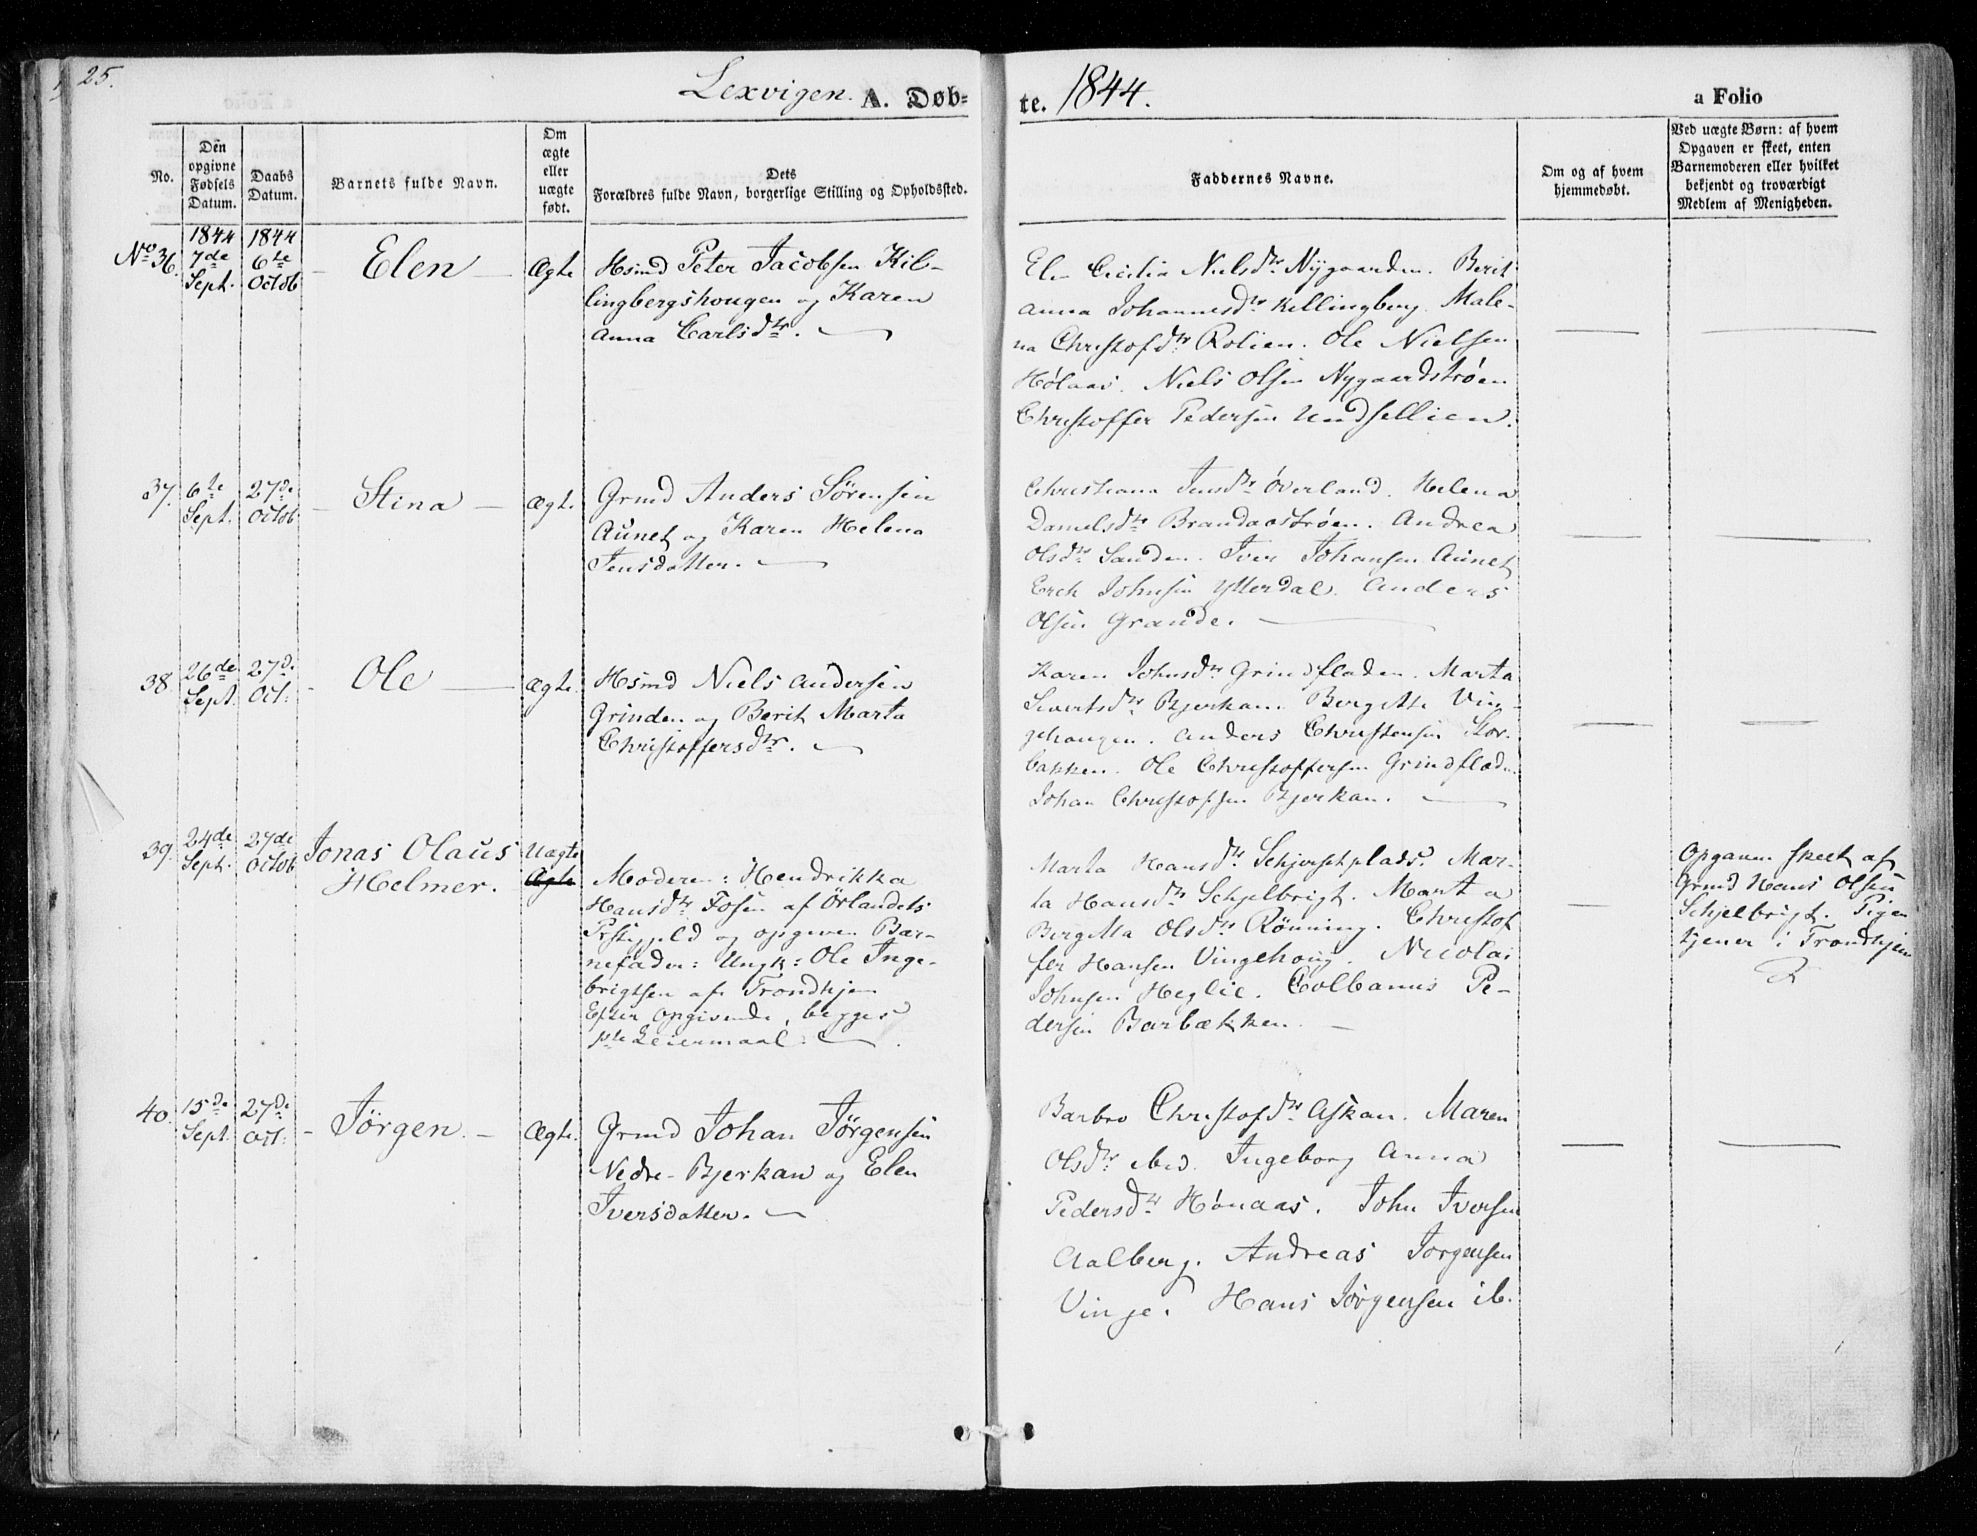 25.
Lexvigen. A. Døb=
te. 1844.
a Folio
No.
Den opgivne Fødsels Datum.
Daabs Datum.
Barnets fulde Navn.
Om ægte eller uægte født.
Dets
Forældres fulde Navn, borgerlige Stilling og Opholdssted.
Faddernes Navne.
Om og af hvem hjemmedøbt.
Ved uægte Børn: af hvem
Opgaven er skeet, enten
Barnemoderen eller hvilket
bekjendt og troværdigt
Medlem af Menigheden.
1844 1844
No 36. 7de Sept. 6te Octob
Elen
Ægte
Hsmd Peter Jacobsen Kil-
lingbergshougen og Karen
Anna Carlsdtr.
Cicilia Nielsdtr Nygaarden. Berit
Anna Johannesdtr Killingberg. Male-
na Christofdtr Rolien. Ole Nielsen
Hølaas. Niels Olsen Nygaardstrøen
Christoffer Pedersen Undsetlien.
37. 6te Sept. 27de Octob
Stina
Ægte
Grmd Anders Sørensen
Aunet og Karen Helena
Jensdatter.
Christiana Jensdtr Øverland. Helena
Danielsdtr Brandaastrøen. Andrea
Olsdtr Sanden. Iver Johansen Aunet
Erek Johnsen Ytterdal. Anders
Olsen Grande.
38. 26de Sept. 27de Oct:
Ole
Ægte.
Hsmd Niels Andersen
Grinden og Berit Marta
Christoffersdtr.
Karen Johnsdtr Grindfladen. Marta
Sivertsdtr Bjerkan. Bergitte Vin-
gehougen. Anders Christensen Stor-
bakken. Ole Christoffersen Grindfladen
Johan Christofsen Bjerkan.
39. 24de Sept. 27de Octob
Jonas Olaus
Helmer.
Uægte
Ægte
Moderen: Hendrikka
Hansdtr Fosen af Ørlandets
Prstgjeld og opgiven Bar-
nefader: Ungk: Ole Inge-
brigtsen af Trondhjem
Efter Opgivende, begges
1ste Leiermaal.
Marta Hansdtr Schjersetplads. Mar-
ta Hansdtr Schjelbrigt. Marta
Bergitta Olsdtr Rønning. Christof
fer Hansen Vingehoug. Nicolai
Johnsen Heglie. Colbanus Pe-
dersen Barbækken.
Opgaven skeet af
Grmd Hans Olsen
Schjelbrigt. Pigen
tjener i Trondhjem
40. 15de Sept 27de Oct:
Jörgen.
Ægte.
Grmd Johan Jörgensen
Nedre-Bjerkan og Elen
Iversdatter.
Barbro Christofdtr Askan. Maren
Olsdtr ibid. Ingeborg Anna
Pedersdtr Hønaas. John Iversen
Aalberg. Andreas Jorgensen
Vinge. Hans Jörgensen ib.